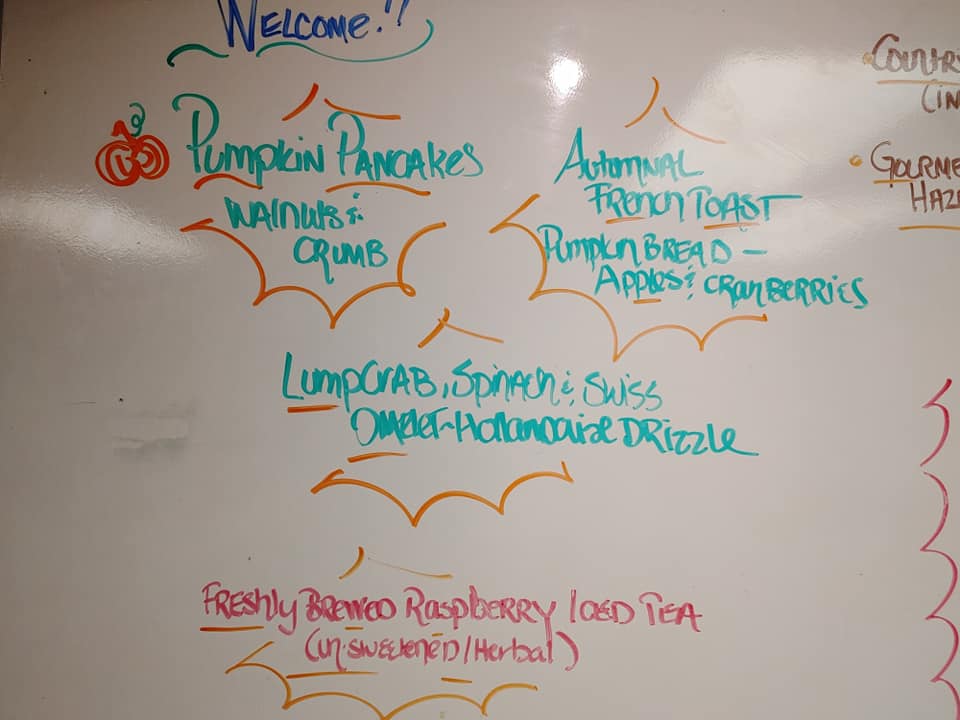 Welcome!!
Pumpkin Pancakes
Walnuts &
Crumb
Autumnal
French Toast
Pumpkin Bread —
Apples & Cranberries
Lump Crab, Spinach & Swiss
Omelet~Hollandaise Drizzle
Freshly Brewed Raspberry Iced Tea
(un-sweetened/Herbal)